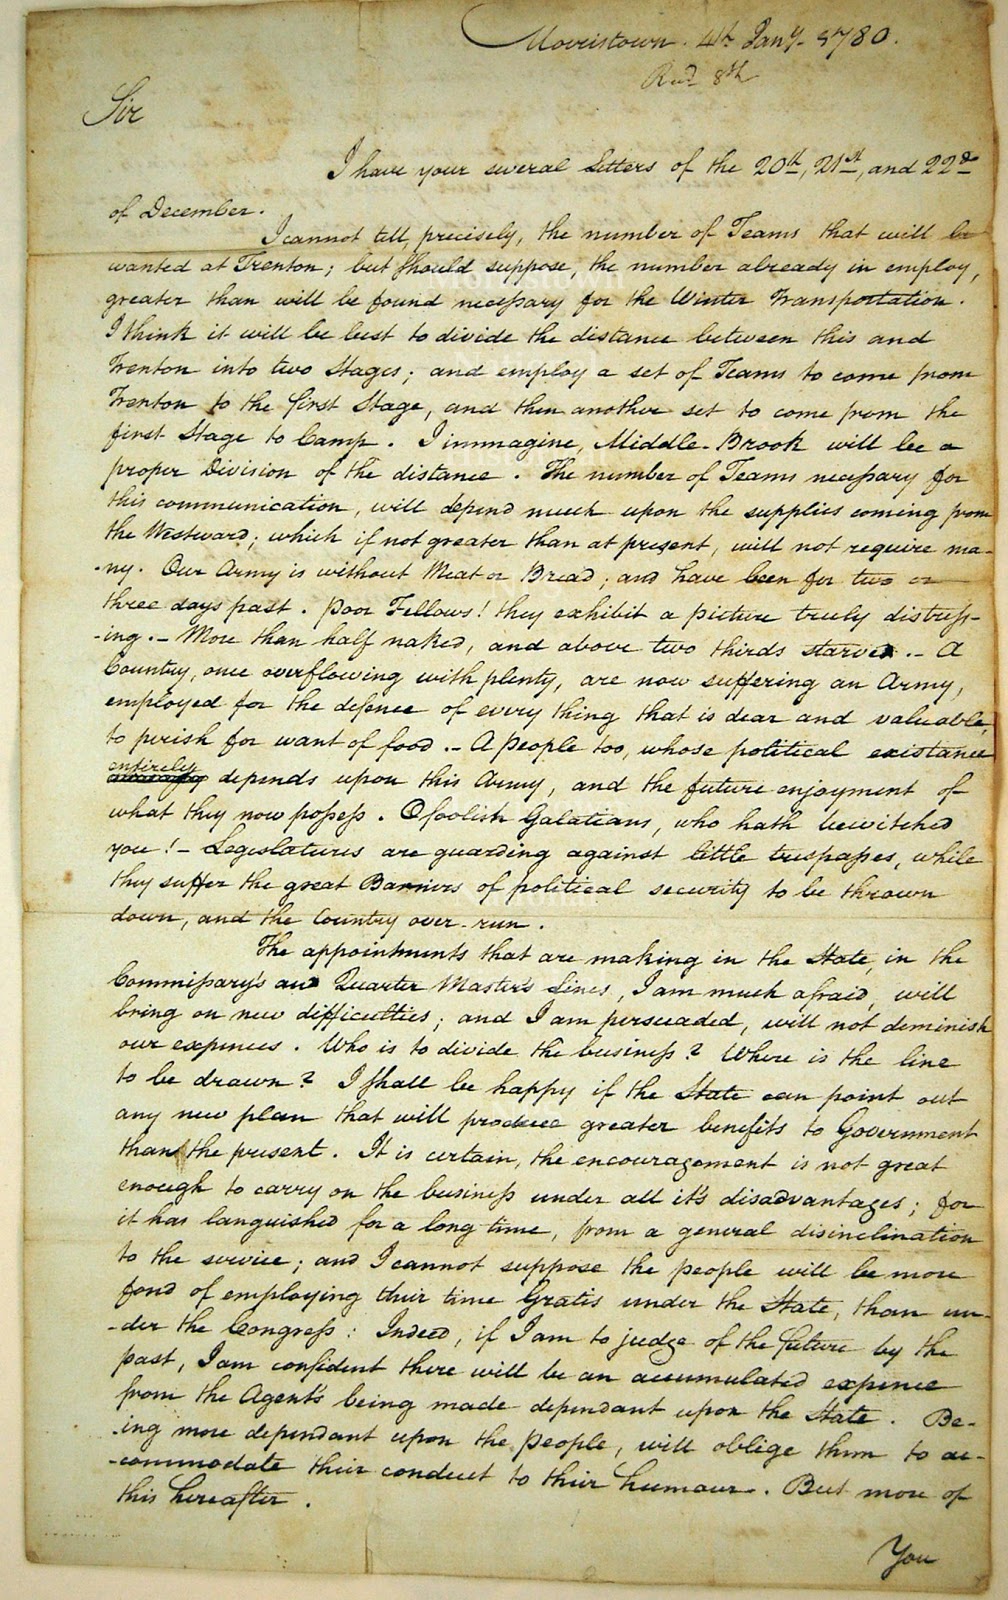 Morristown. 4th Jany. 1780.
Recd 8th
Sir
I have your several Letters of the 20th, 21st, and 22d
of December.
I cannot tell precisely, the number of Teams that will be
wanted at Trenton; but should suppose, the number already in employ,
greater than will be found necessary for the Winter Transportation.
I think it will be best to divide the distance between this and
Trenton into two Stages; and employ a set of Teams to come from
Trenton to the first Stage, and then another set to come from the
first Stage to Camp. I immagine, Middle-Brook will be a
proper Division of the distance. The number of Teams necessary for
this communication, will depend much upon the supplies coming from
the Westward; which if not greater than at present, will not require ma-
-ny. Our Army is without Meat or Bread; and have been for two or
three days past. Poor Fellows! they exhibit a picture truly distress-
-ing. - More than half naked, and above two thirds starved. - A
Country, once overflowing with plenty, are now suffering an Army,
employed for the defence of every thing that is dear and valuable,
to perish for want of food. - A people too, whose political existance
entirely
depends upon this Army, and the future enjoyment of
what they now possess. O foolish Galatians, who hath bewitched
you! - Legislatures are guarding against little trespasses, while
they suffer the great Barriers of political security to be thrown
down, and the Country over-run.
The appointments that are making in the State, in the
Commissary's and Quarter Master's Lines, I am much afraid, will
bring on new difficulties; and I am persuaded, will not deminish
our expences. Who is to divide the business? Where is the line
to be drawn? I shall be happy if the State can point out
any new plan that will produce greater benefits to Government
than the present. It is certain, the encouragement is not great
enough to carry on the business under all it's disadvantages; for
it has languished for a long time, from a general disinclination
to the service; and I cannot suppose the people will be more
fond of employing their time Gratis under the State, than un-
-der the Congress: Indeed, if I am to judge of the future by the
past, I am confident there will be an accumulated expence
from the Agent's being made dependant upon the State. Be-
-ing more dependant upon the people, will oblige them to ac-
-commodate their conduct to their humour. But more of
this hereafter.
You